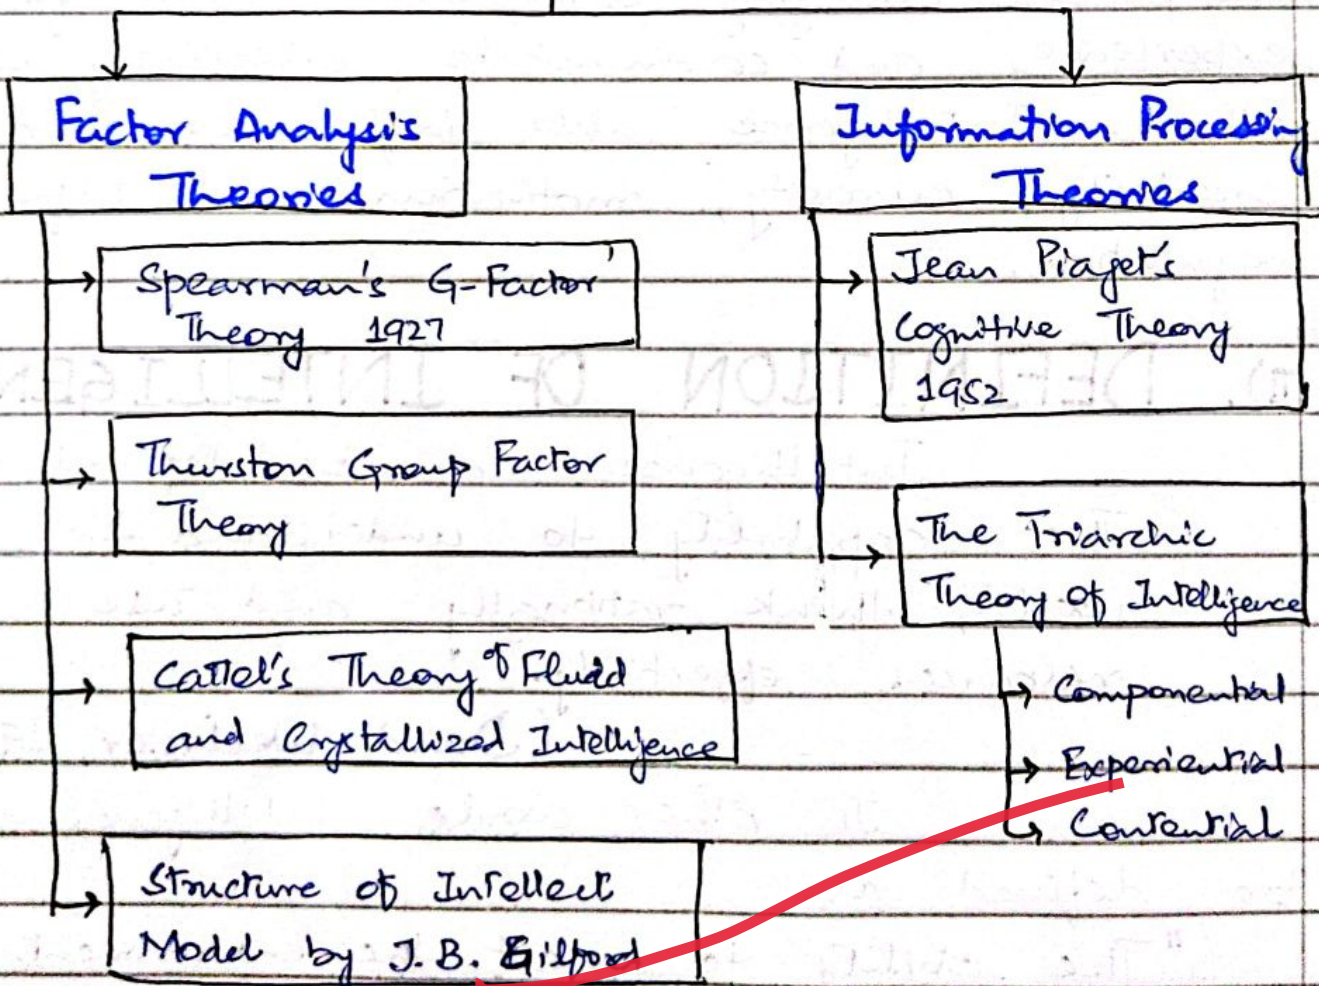 Factor Analysis
Theories
Spearman's G-Factor
Theory 1927
Thurston Group Factor
Theory
Cattel's Theory of Fluid
and Crystallized Intelligence
Structure of Intellect
Model by J.B. Gilford
Information Processing
Theories
Jean Piaget's
Cognitive Theory
1952
The Triarchic
Theory of Intelligence
Componential
Experiential
DEFINITION OF INTELLIGEN